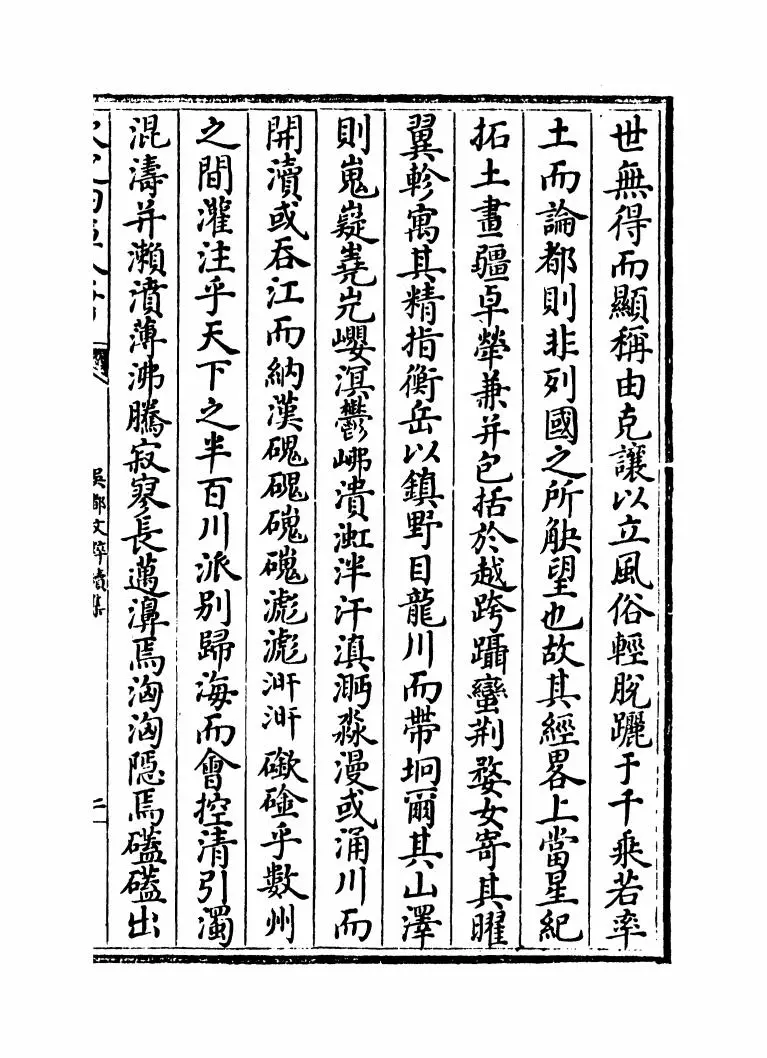 世無得而顯稱由克讓以立風俗輕脫躧于千乘若率
土而論都則非列國之所觖望也故其經畧上當星紀
拓土畫疆卓犖兼并包括於越跨躡蠻荆婺女寄其曜
翼軫寓其精指衡岳以鎮野目龍川而帶坰爾其山澤
則嵬嶷嶤屼巊溟鬱岪潰渱泮汗滇㴐淼漫或涌川而
開瀆或吞江而納漢磈磈磈磈滮滮涆涆䃢硷乎數州
之間灌注乎天下之半百川派別歸海而會控清引濁
混濤并瀨濆薄沸騰寂寥長邁濞焉洶洶隱焉礚礚出
吳都文粹續集
二